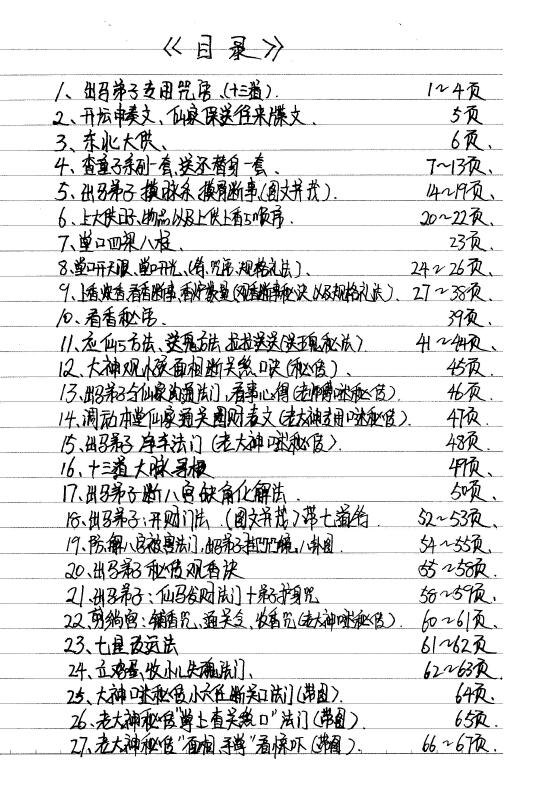 《目录》
1、出马弟子专用咒语(十三道). 1~4页
2、开坛申奏文、仙家保送往来牒文、 5页
3、东北大供、 6页
4、查童子条别一套,送还替身一套、 7~13页
5、出马弟子摸脉条,摸脉断事(图文并茂). 14~19页
6、上大供口子、物品以及上供上香的顺序. 20~22页
7、堂口四梁八柱、 23页
8、堂口开天眼、堂口开光、(条咒语、规格礼法)、 24~26页
9、上香烧香、看香断事、香炉数量(观香断事秘诀以及规格礼法). 27~38页
10、看香秘法. 39页
11、应仙的方法、送鬼方法 送灵(送鬼秘法). 41~44页
12、大神观小孩面相断关煞口诀(秘传). 45页
13、出马弟子与仙家沟通法门、看事心得(老神秘传). 46页
14、调动本堂仙家通关圆财表文(老大神专用口咪秘传). 47页
15、出马弟子净车法门(老大神口咪秘传) 48页
16、十三道大脉寻根 49页
17、出马弟子断八宫缺角化解法. 50页
18、出马弟子:开财门法.(图文并茂)带七道符. 52~53页
19、防解八宫被害法门、出马弟子 镜、八卦图. 54~55页
20、出马弟子秘传观香诀 55~58页
21、出马弟子:仙马发财法门十弟子护身咒 58~59页
22、剪狗宫:铺香咒、通关文、收香咒(老大神口咪秘传). 60~61页
23、七星改运法 61~62页
24、立鸡蛋、收小儿失魂法门、 62~63页
25、大神口咪秘传小六壬断关口法门(带图). 64页
26、老大神秘传"掌上查关煞口"法门(带图). 65页
27、老大神秘传"面相、手掌"看惊吓(带图). 66~67页